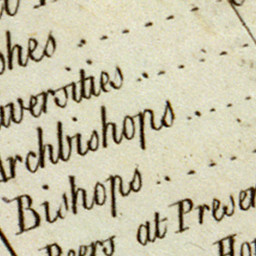 shes
iversities
Archbishops
Bishops
Peers at Presen
Hou